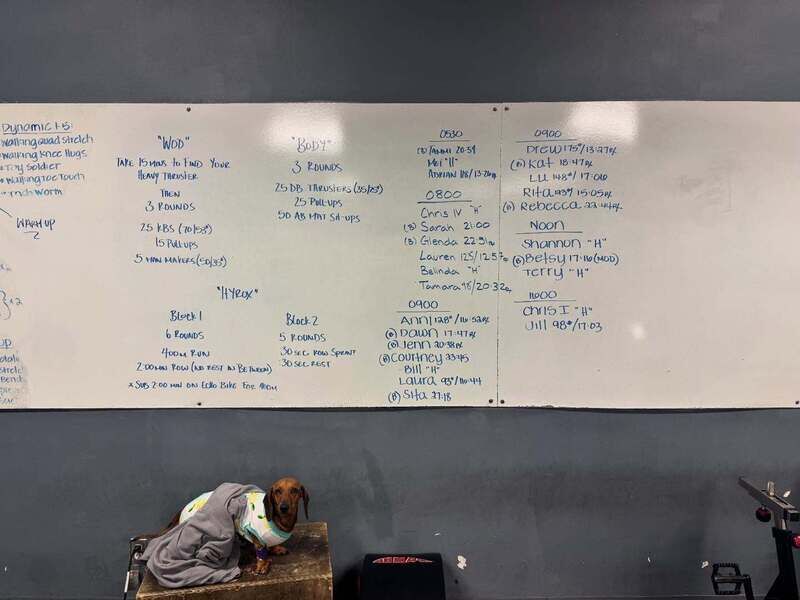 Dynamic 1-5:
Walking Quad Stretch
Walking Knee Hugs
Toy Soldier
Walking Toe Touch
Inch Worm
WARM UP
2
}x2
up
"WOD"
TAKE 15 MINS TO FIND YOUR
HEAVY THRUSTER
THEN
3 ROUNDS
25 KBS (70/53#)
15 PULL-UPS
5 MAN MAKERS (50/35#)
"BODY"
3 ROUNDS
25 DB THRUSTERS (35/25#)
25 PULL-UPS
50 AB MAT SIT-UPS
"HYROX"
Block 1
6 ROUNDS
400m RUN
2:00 MIN ROW (NO REST IN BETWEEN)
* SUB 2:00 MIN ON ECHO BIKE FOR 400m
Block 2
5 ROUNDS
:30 SEC ROW SPRINT
:30 SEC REST
0530
Mei "H"
0800
Chris IV "H"
(B) Sarah 21:00
(B) Glenda 22:51
Lauren 125/12:57
Belinda "H"
Tamara 98/20:32
0900
Ann 128#/16:52RX
(B) Dawn 17:47RX
(B) Jenn 20:38RX
(B) Courtney 23:45
Bill "H"
Laura 93#/16:44
(B) Sita 27:18
0900
Drew 175#/13:27RX
(B) Kat 18:47RX
Lu 148#/17:06
Rita 93#/15:05RX
(B) Rebecca 22:44RX
NOON
Shannon "H"
(B) Betsy 17:16 (MOD)
Terry "H"
1600
Chris I "H"
Jill 98#/17:03